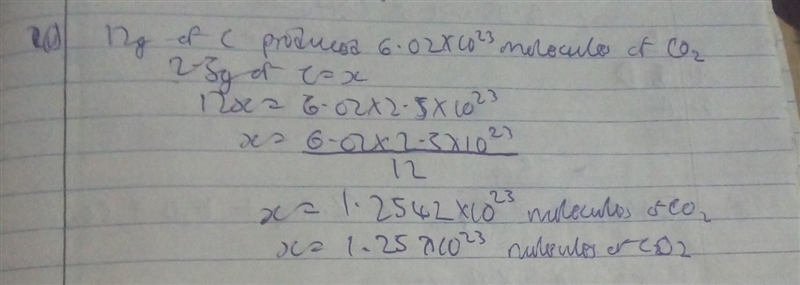 2(i) 12g of C produced 6.02×10²³ molecules of CO₂
2.5g of C = x
12x = 6.02×2.5×10²³
x = 6.02×2.5×10²³
12
x = 1.2542×10²³ molecules of CO₂
x = 1.25×10²³ molecules of CO₂